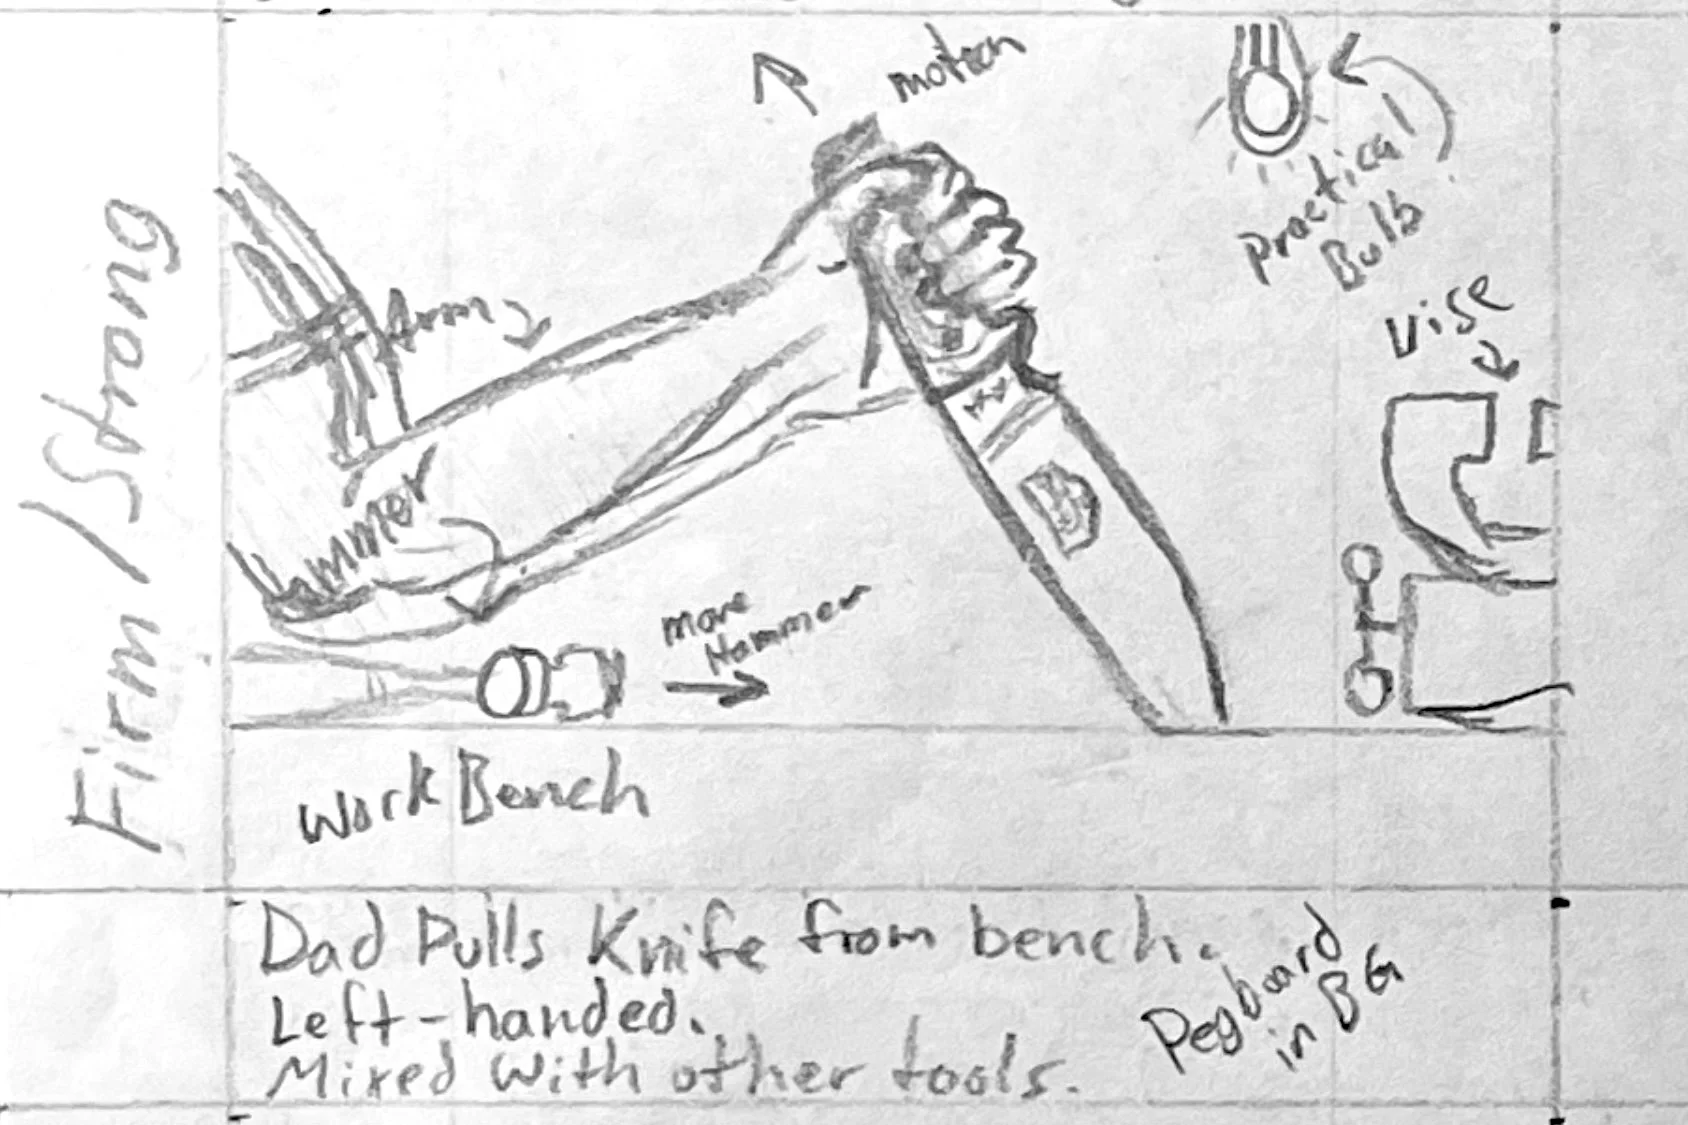 motion
Practical
Bulb
Vise
Arm
Hammer
more
Hammer
Firm/Strong
Work Bench
Dad Pulls Knife from bench.
Left-handed.
Mixed with other tools.
Pegboard
in BG